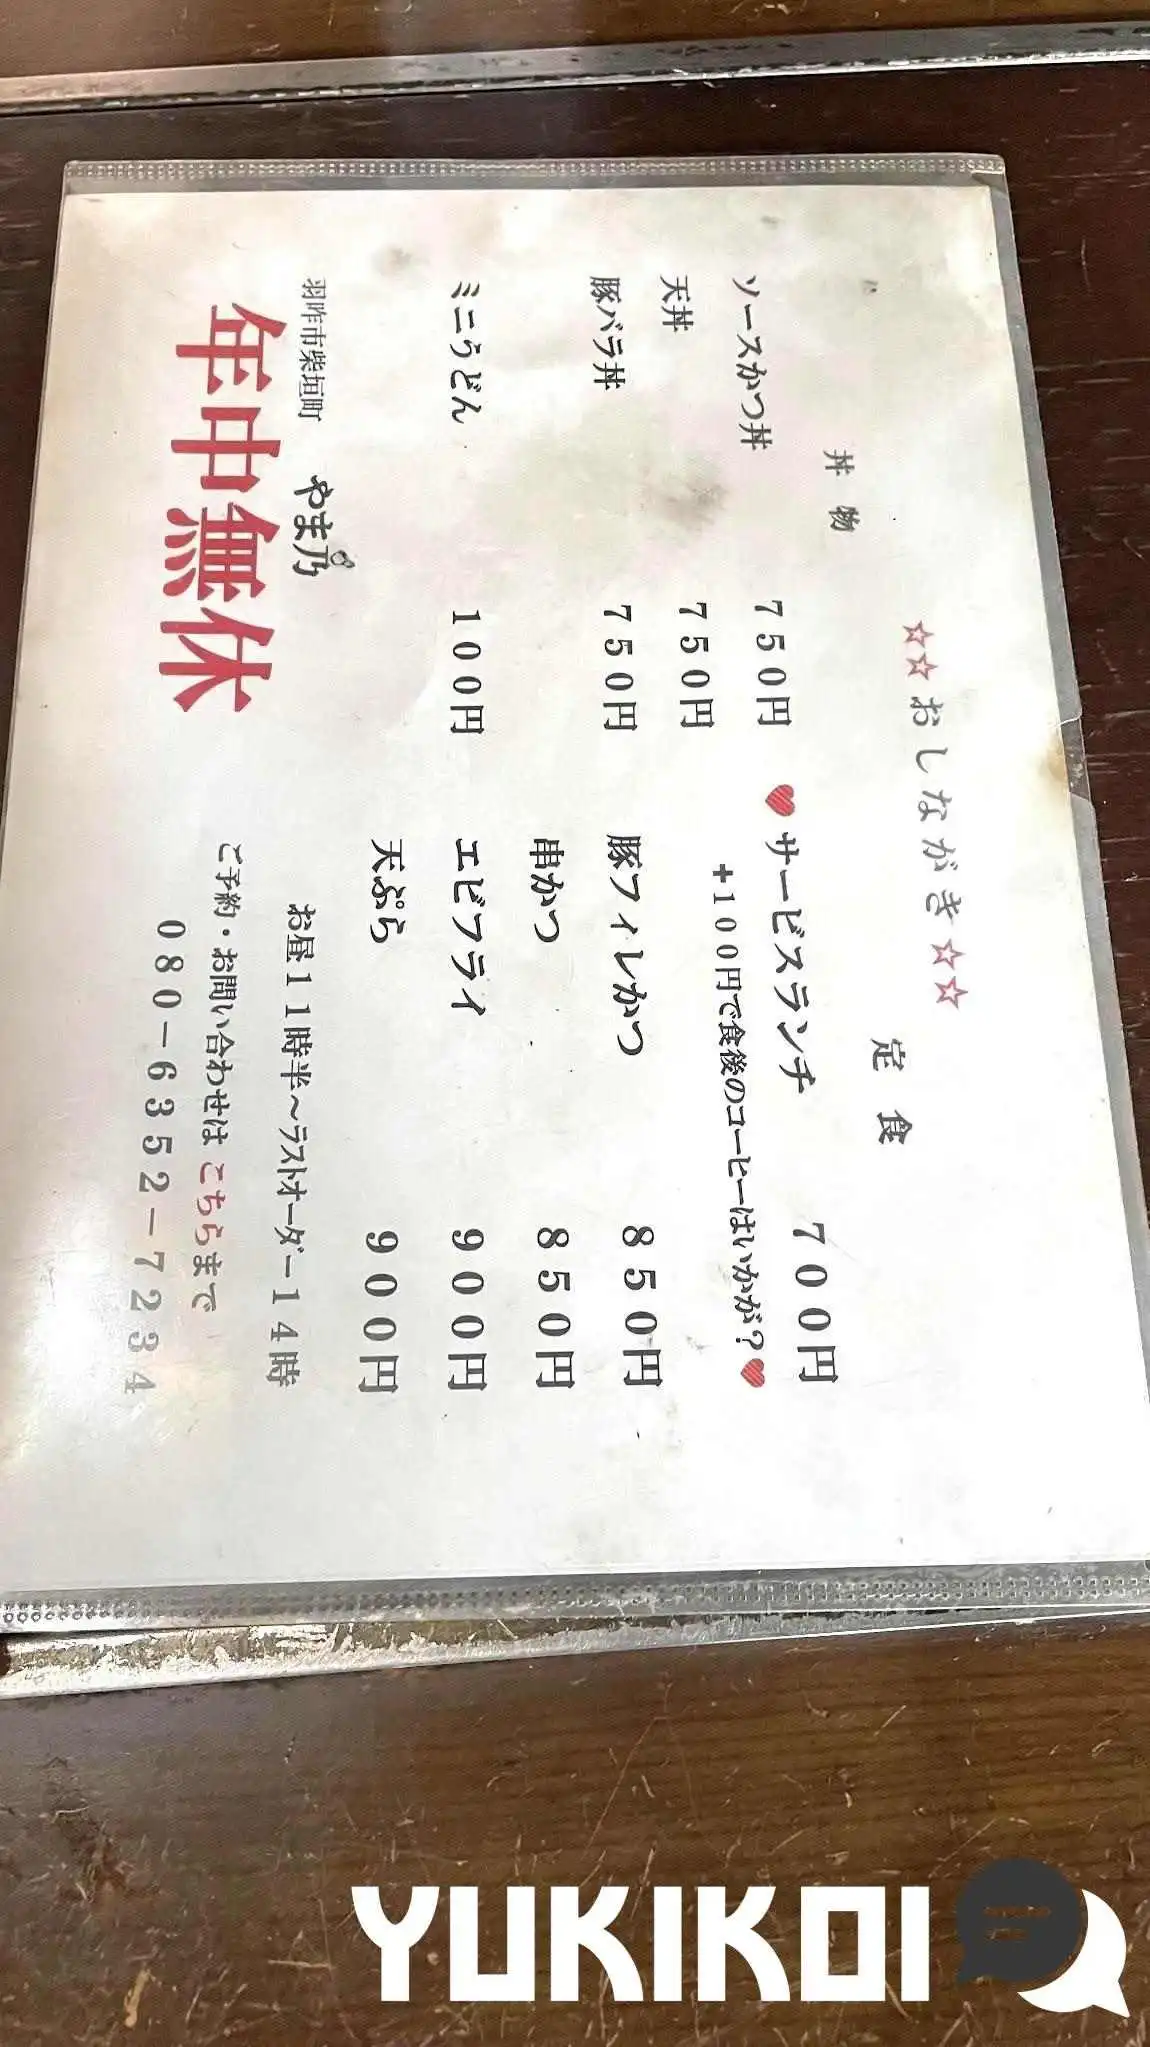 ☆☆おしながき☆☆
丼物
ソースかつ丼 750円
天丼 750円
豚バラ丼 750円
ミニうどん 100円
定食
♥サービスランチ 700円
+100円で食後のコーヒーはいかが?♥
豚フィレかつ 850円
串かつ 850円
エビフライ 900円
天ぷら 900円
お昼11時半~ラストオーダー14時
ご予約・お問い合わせはこちらまで
080-6352-7234
羽咋市柴垣町 やま乃
年中無休
YUKIKOI